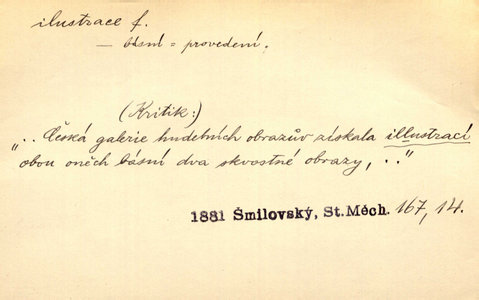 ilustrace f.
— básní = provedení.
(Kritik:)
„.. Česká galerie hudebních obrazův získala illustrací
obou oněch básní dva skvostné obrazy, .."
1881 Šmilovský, St. Měch. 167, 14.